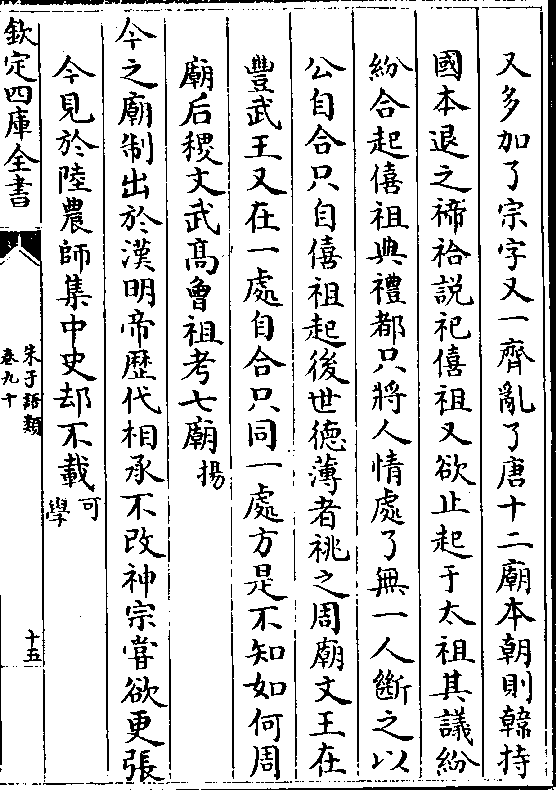 又多加了宗字又一齊亂了唐十二廟本朝則韓持
國本退之禘祫説祀僖祖又欲止起于太祖其議紛
紛合起僖祖典禮都只將人情處了無一人斷之以
公自合只自僖祖起後世德薄者祧之周廟文王在
豐武王又在一處自合只同一處方是不知如何周
廟后稷文武高曾祖考七廟揚
今之廟制出於漢明帝歴代相承不改神宗嘗欲更張
今見於陸農師集中史却不載可學
欽定四庫全書
朱子語類
卷九十
十五